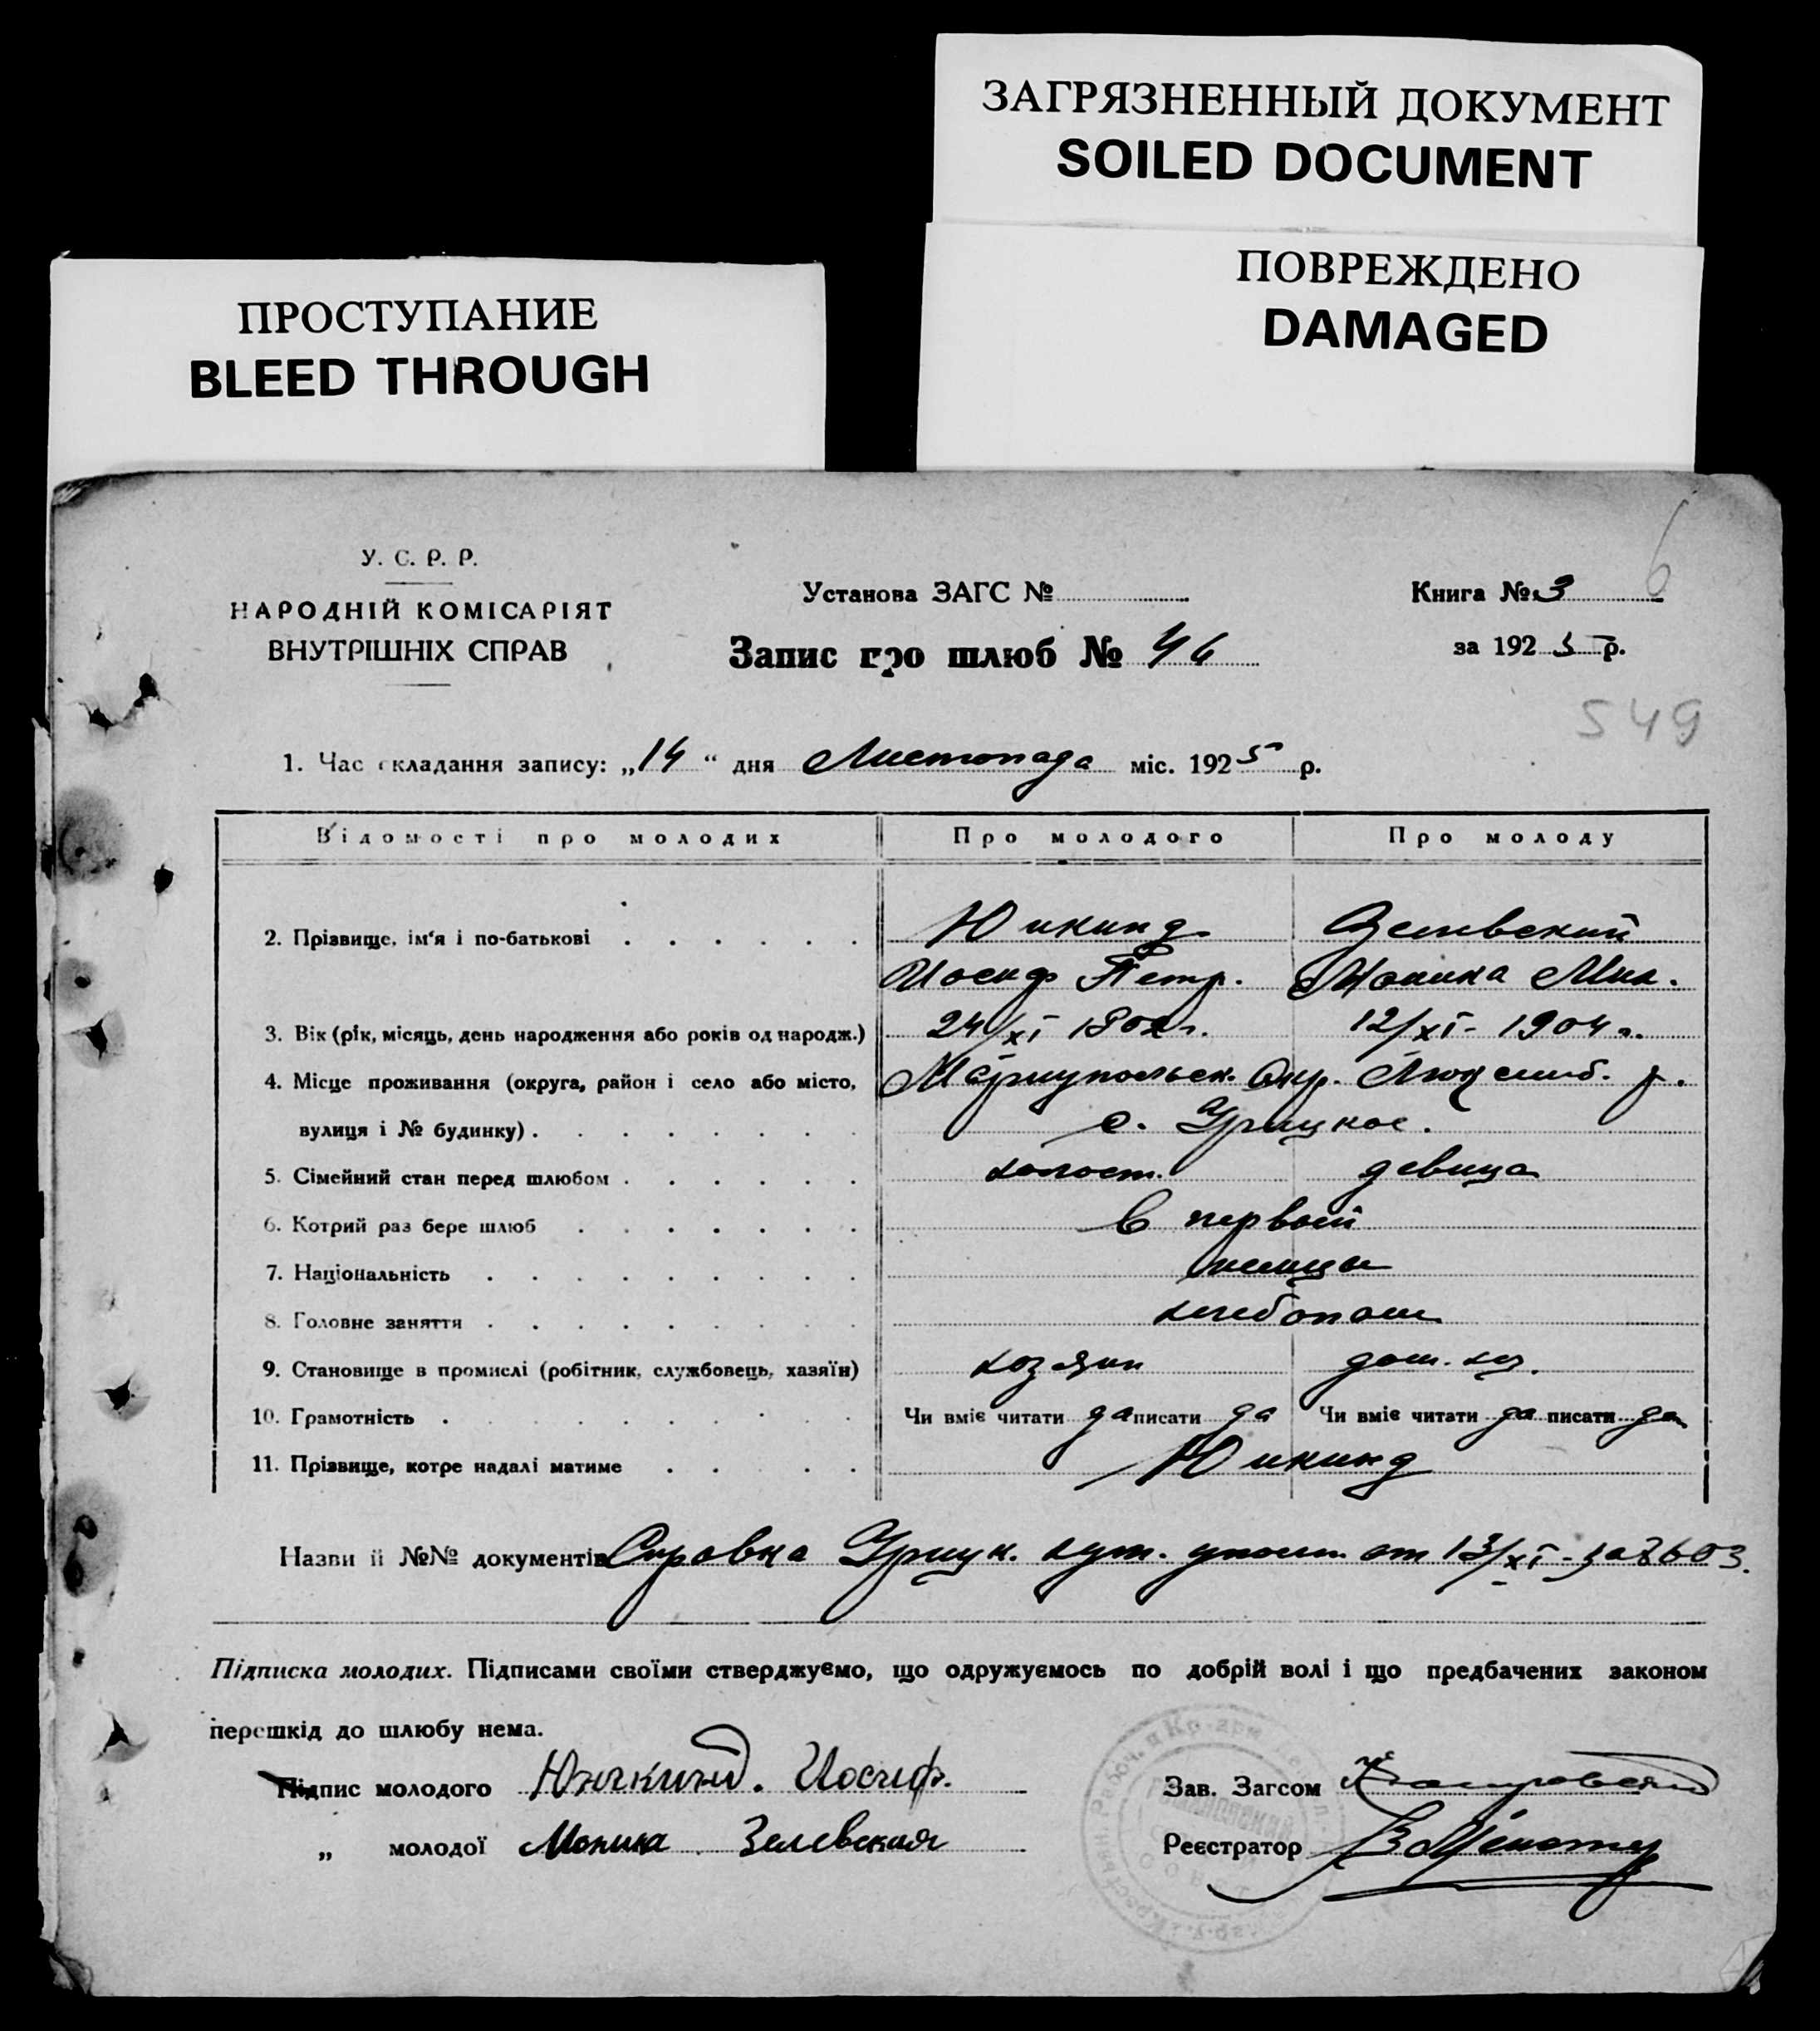 ЗАГРЯЗНЕННЫЙ ДОКУМЕНТ
SOILED DOCUMENT
ПОВРЕЖДЕНО
DAMAGED
ПРОСТУПАНИЕ
BLEED THROUGH
6
У. С. Р. Р.
НАРОДНІЙ КОМІСАРІЯТ
ВНУТРІШНІХ СПРАВ
Установа ЗАГС №
Книга № 3
Запис про шлюб № 46
за 1925 р.
549
1. Час складання запису: „14“ дня Листопада міс. 1925 р.
Відомості про молодих Про молодого Про молоду
2. Прізвище, ім'я і по-батькові Юнкинд Зелевский
Иосиф Петр. Моника Мих.
3. Вік (рік, місяць, день народження або років од народж.) 24/XI 1902 г. 12/XI - 1904 г.
4. Місце проживання (округа, район і село або місто, Мариупольск. Окр. Люксемб. р.
вулиця і № будинку) с. Урицкое.
5. Сімейний стан перед шлюбом холост. девица
6. Котрий раз бере шлюб в первый
7. Національність немцы
8. Головне заняття хлебопаш
9. Становище в промислі (робітник, службовець, хазяїн) хозяин дом. хоз.
10. Грамотність Чи вміє читати да писати да Чи вміє читати да писати да
11. Прізвище, котре надалі матиме Юнкинд
Назви ії №№ документів Справка Урицк. хут. упол. от 13/XI - за 603.
Підписка молодих. Підписами своїми стверджуємо, що одружуємось по добрій волі і що предбачених законом
перешкід до шлюбу нема.
Підпис молодого Юнкинд. Иосиф.
„ молодої Моника Зелевская
Зав. Загсом
Реєстратор